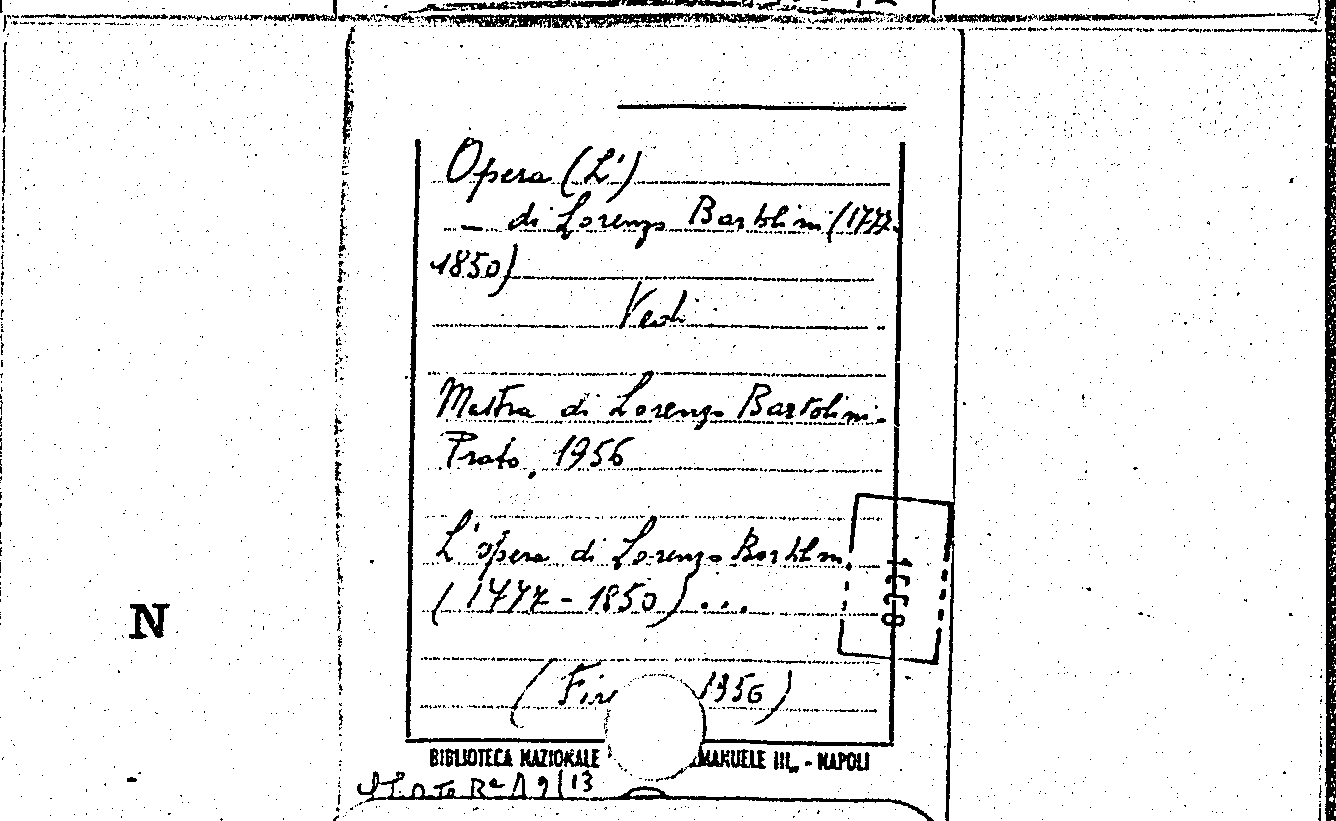 Opera (L')
— di Lorenzo Bartolini (1777-
1850)
Vedi
Mostra di Lorenzo Bartolini.
Prato, 1956
L'opera di Lorenzo Bartolini
(1777-1850)...
(Fire 1956)
N
BIBLIOTECA NAZIONALE MANUELE III„ - NAPOLI